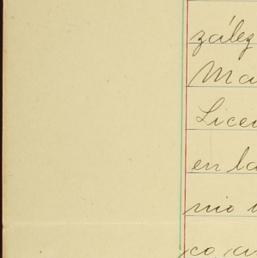 zález
Ma
Licen
en la
mio
co